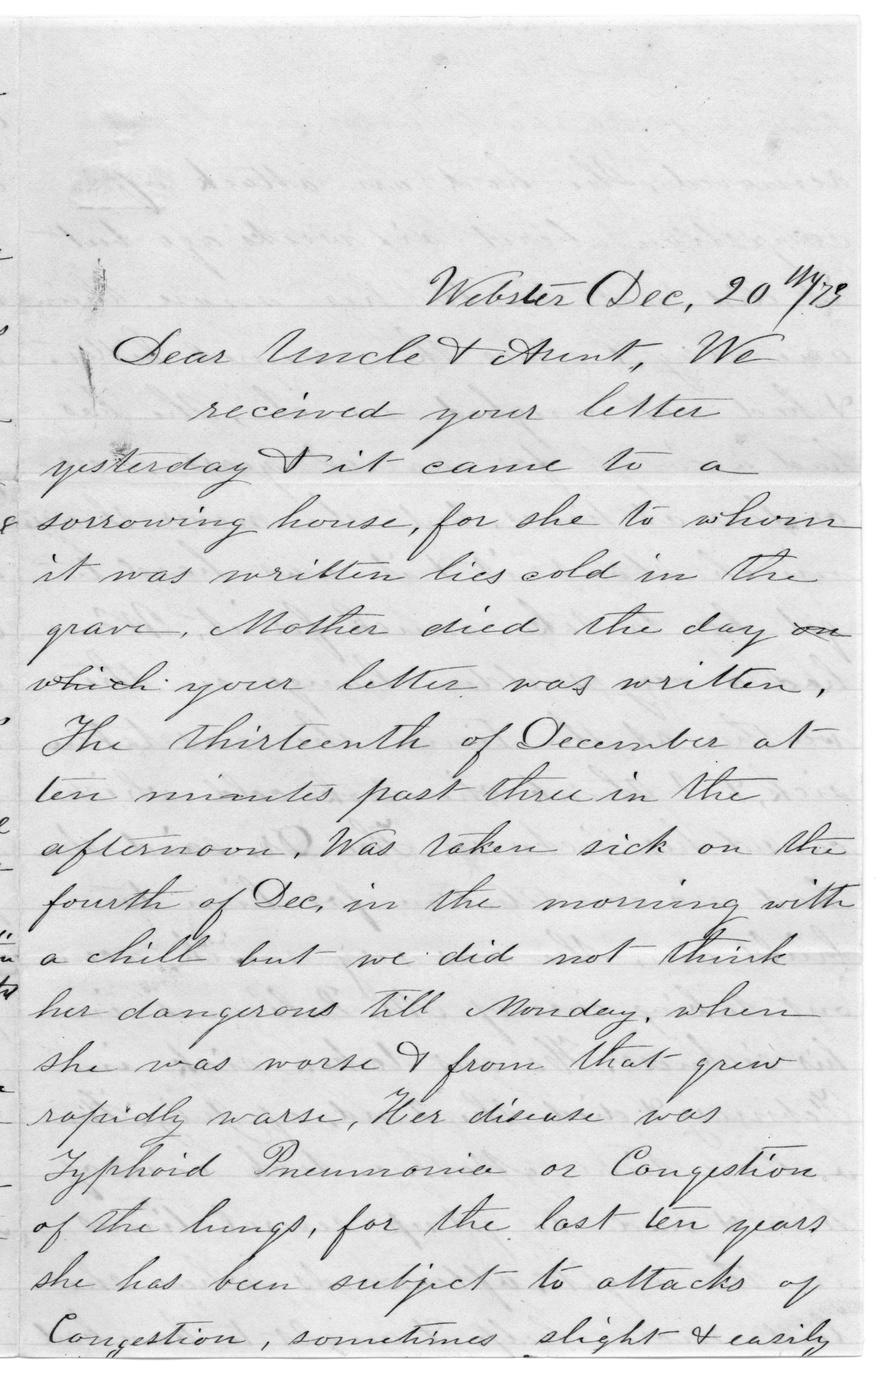 Webster Dec, 20th/79
Dear Uncle & Aunt, We
received your letter
yesterday & it came to a
sorrowing house, for she to whom
it was written lies cold in the
grave. Mother died the day on
which your letter was written,
The thirteenth of December at
ten minutes past three in the
afternoon. Was taken sick on the
fourth of Dec, in the morning with
a chill but we did not think
her dangerous till Monday, when
she was worse & from that grew
rapidly warse, Her disease was
Typhoid Pneumonia or Congestion
of the lungs, for the last ten years
she has been subject to attacks of
Congestion, sometimes slight & easily